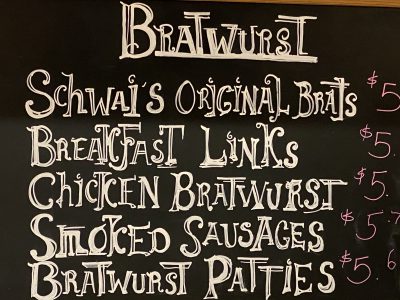 BRATWURST
SCHWAI'S ORIGINAL BRATS $5
BREAKFAST LINKS $5.
CHICKEN BRATWURST $5.
SMOKED SAUSAGES $5.7
BRATWURST PATTIES $5.6